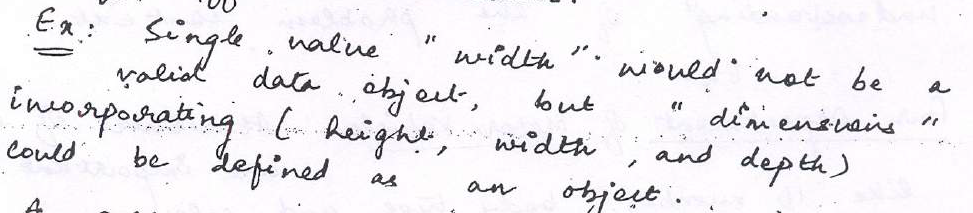 Ex: Single value "width" would not be a
valid data object, but "dimensions"
incorporating (height, width, and depth)
could be defined as an object.